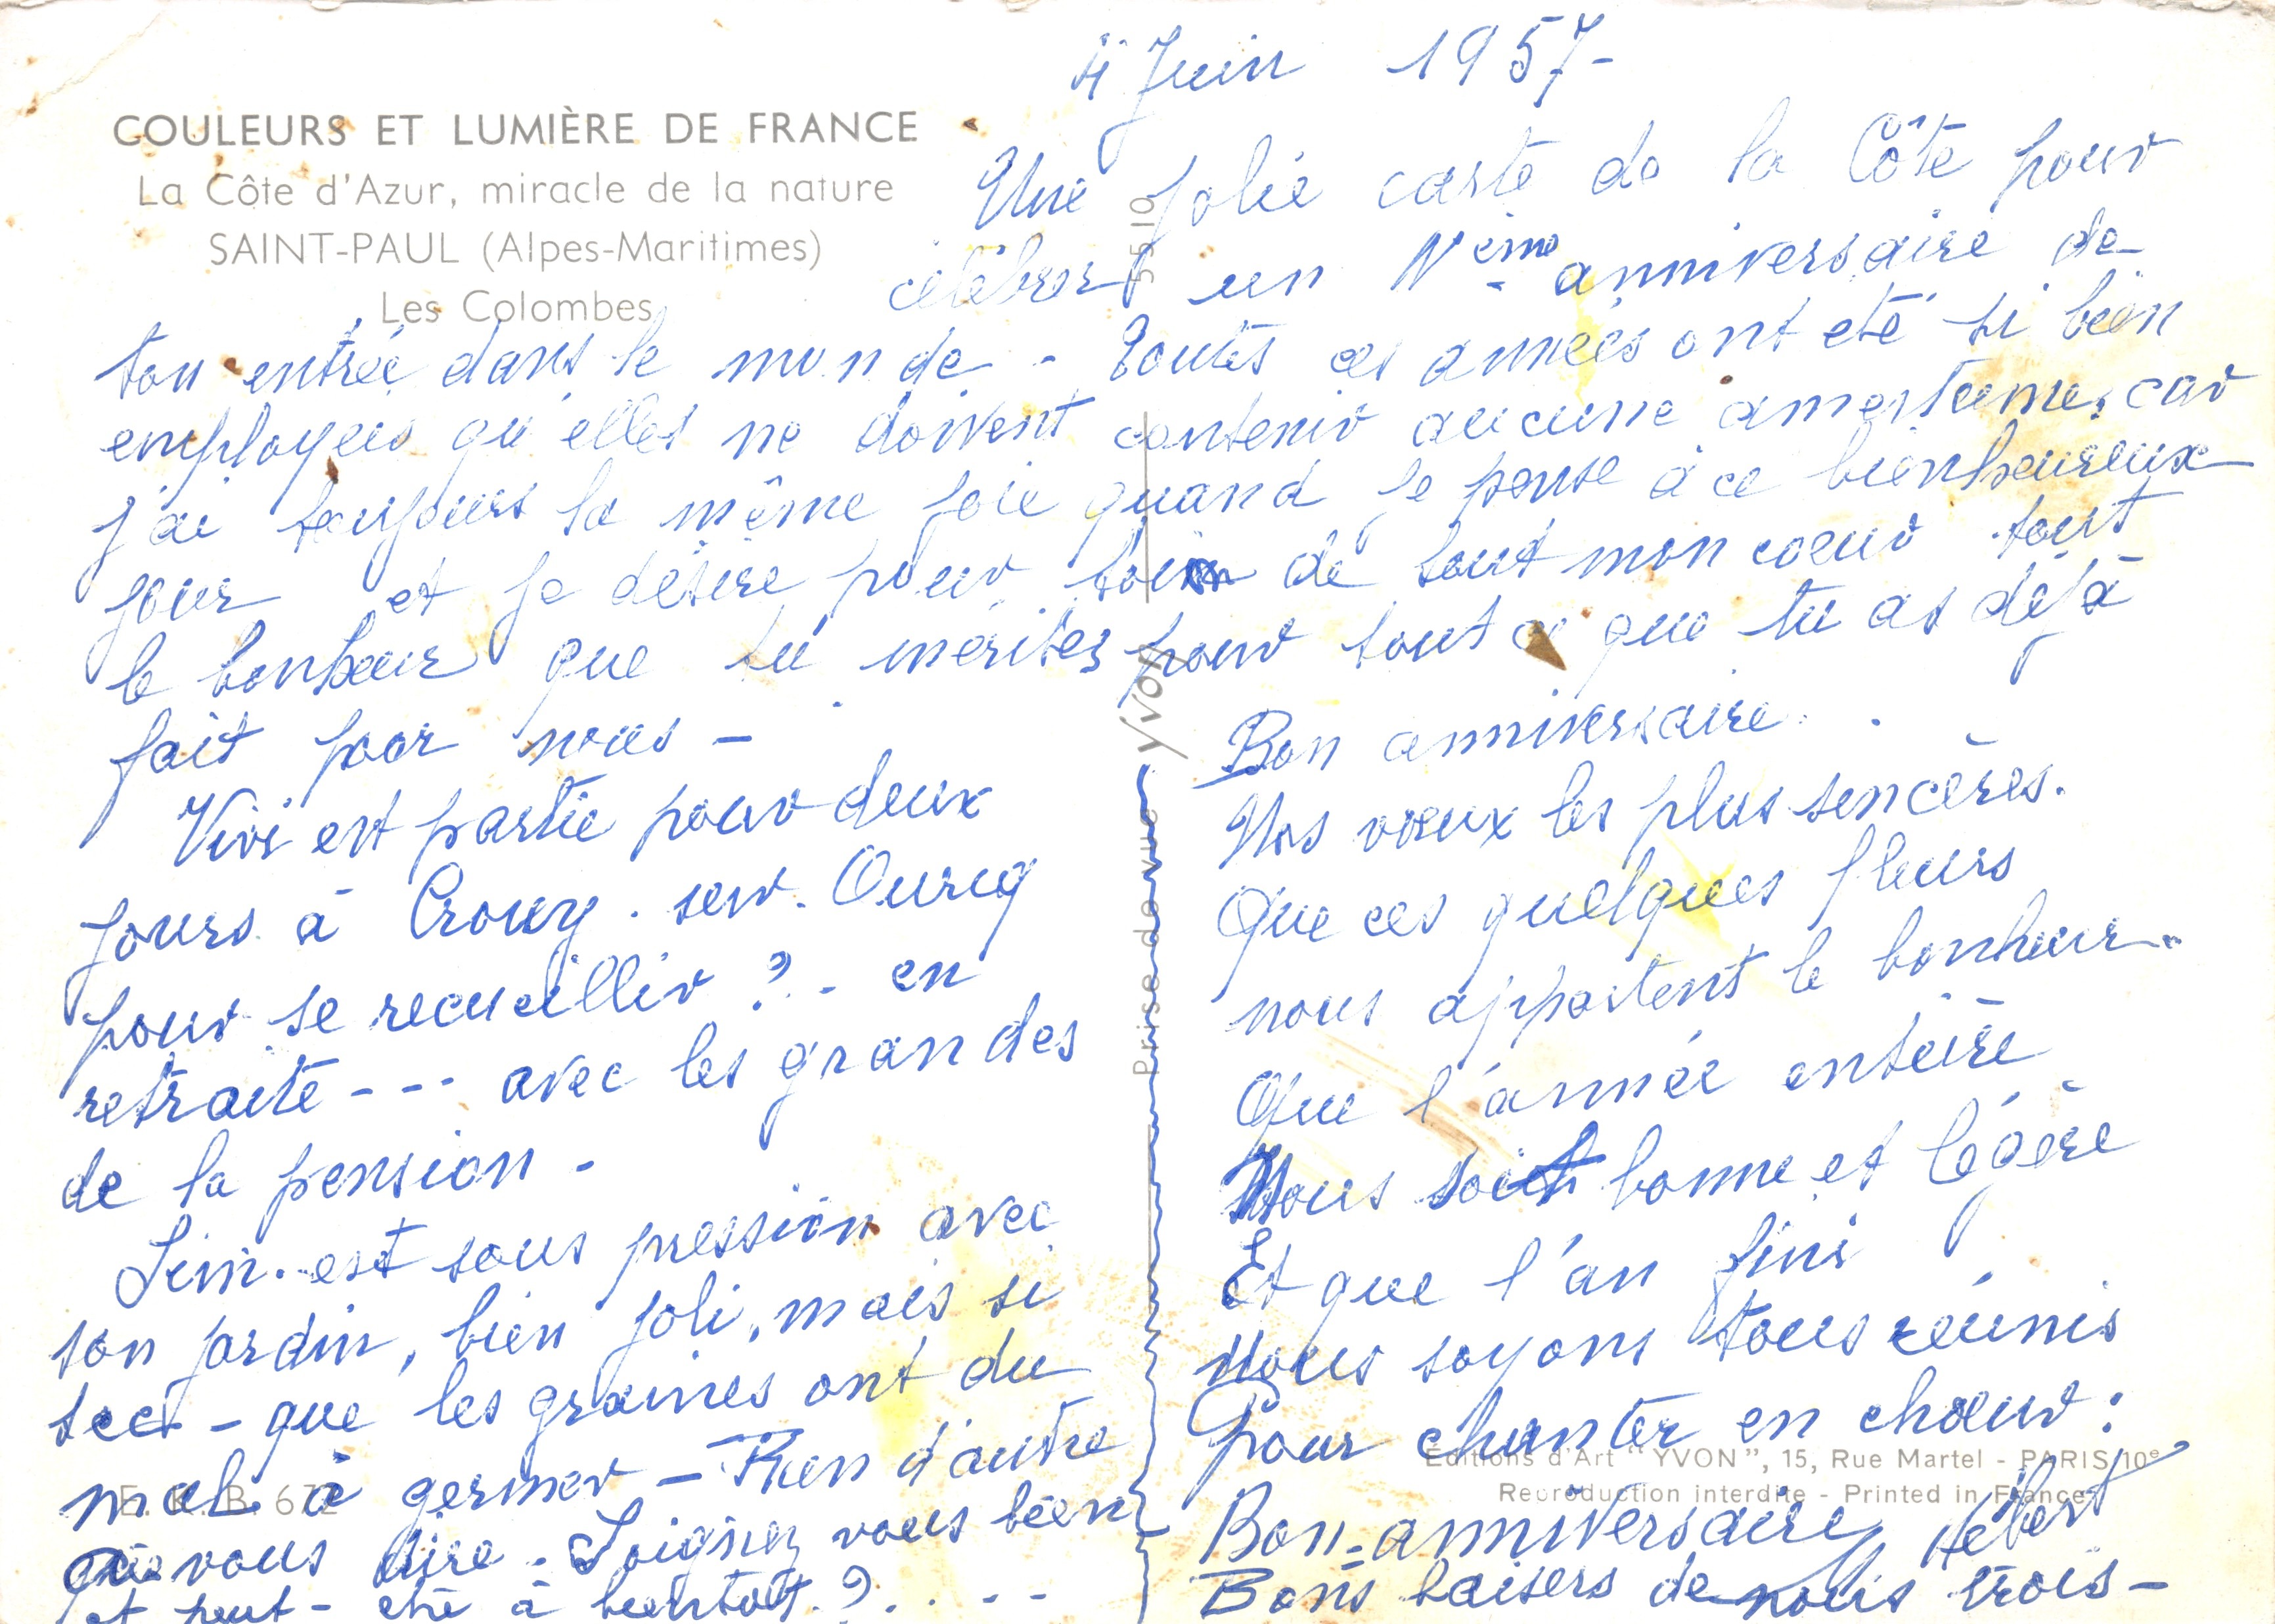 4 Juin 1957-
COULEURS ET LUMIÈRE DE FRANCE
La Côte d'Azur, miracle de la nature
SAINT-PAUL (Alpes-Maritimes)
Les Colombes
Une jolie carte de la Côte pour
célébrer un Nème anniversaire de
ton entrée dans le monde - Toutes ces années ont été si bien
employées qu'elles ne doivent contenir aucune amertume, car
j'ai toujours la même joie quand je pense à ce bienheureux
jour et je désire pour toi de tout mon coeur tout
le bonheur que tu mérites pour tout ce que tu as déjà
fait pour nous -
Vivi est partie pour deux
jours à Crouy. sur. Ourcq
pour se recueillir ? - en
retraite --- avec les grandes
de la pension -
est sous pression avec
son jardin, bien joli, mais si
sec - que les graines ont du
mal à germer - Rien d'autre
vous dire - Soignez vous bien
et peut-être à bientôt ? . . - -
Bon anniversaire.
Nos voeux les plus sincères.
Que ces quelques fleurs
nous apportent le bonheur..
Que l'année entière
Nous soit bonne et légère
Et que l'an fini
Nous soyons tous réunis
Pour chanter en choeur :
Bon-anniversaire Hébert
Bons baisers de nous trois -
5510
Yvon
Prise de vue
E. K. B. 672
Éditions d'Art "YVON", 15, Rue Martel - PARIS 10e
Reproduction interdite - Printed in France